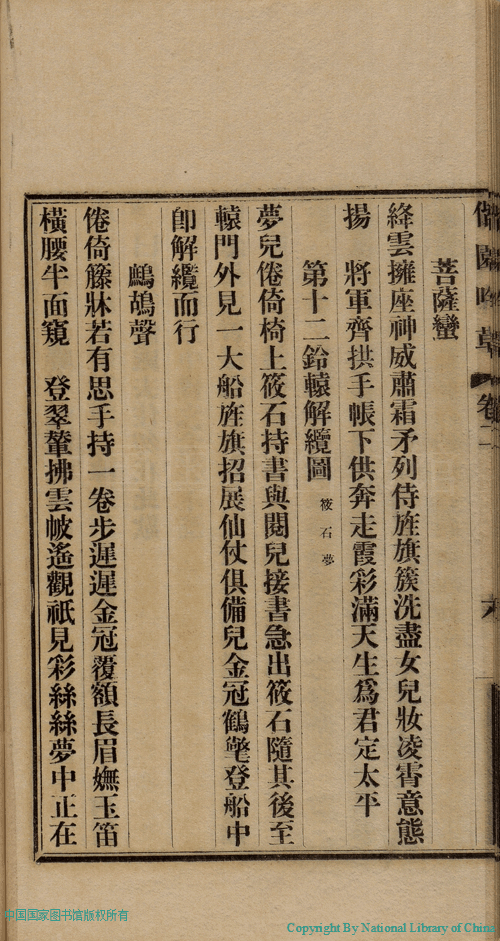 吟草 卷二
菩薩蠻
絳雲擁座神威肅霜矛列侍旌旗簇洗盡女兒妝凌霄意態
揚　將軍齊拱手帳下供奔走霞彩滿天生爲君定太平
第十二鈴轅解纜圖 筱石夢
夢兒倦倚椅上筱石持書與閱兒接書急出筱石隨其後至
轅門外見一大船旌旗招展仙仗俱備兒金冠鶴氅登船中
卽解纜而行
鷓鴣聲
倦倚籐牀若有思手持一卷步遲遲金冠覆額長眉嫵玉笛
橫腰半面窺　登翠輦拂雲帔遙觀祇見彩絲絲夢中正在
中国国家图书馆版权所有
Copyright By National Library of China